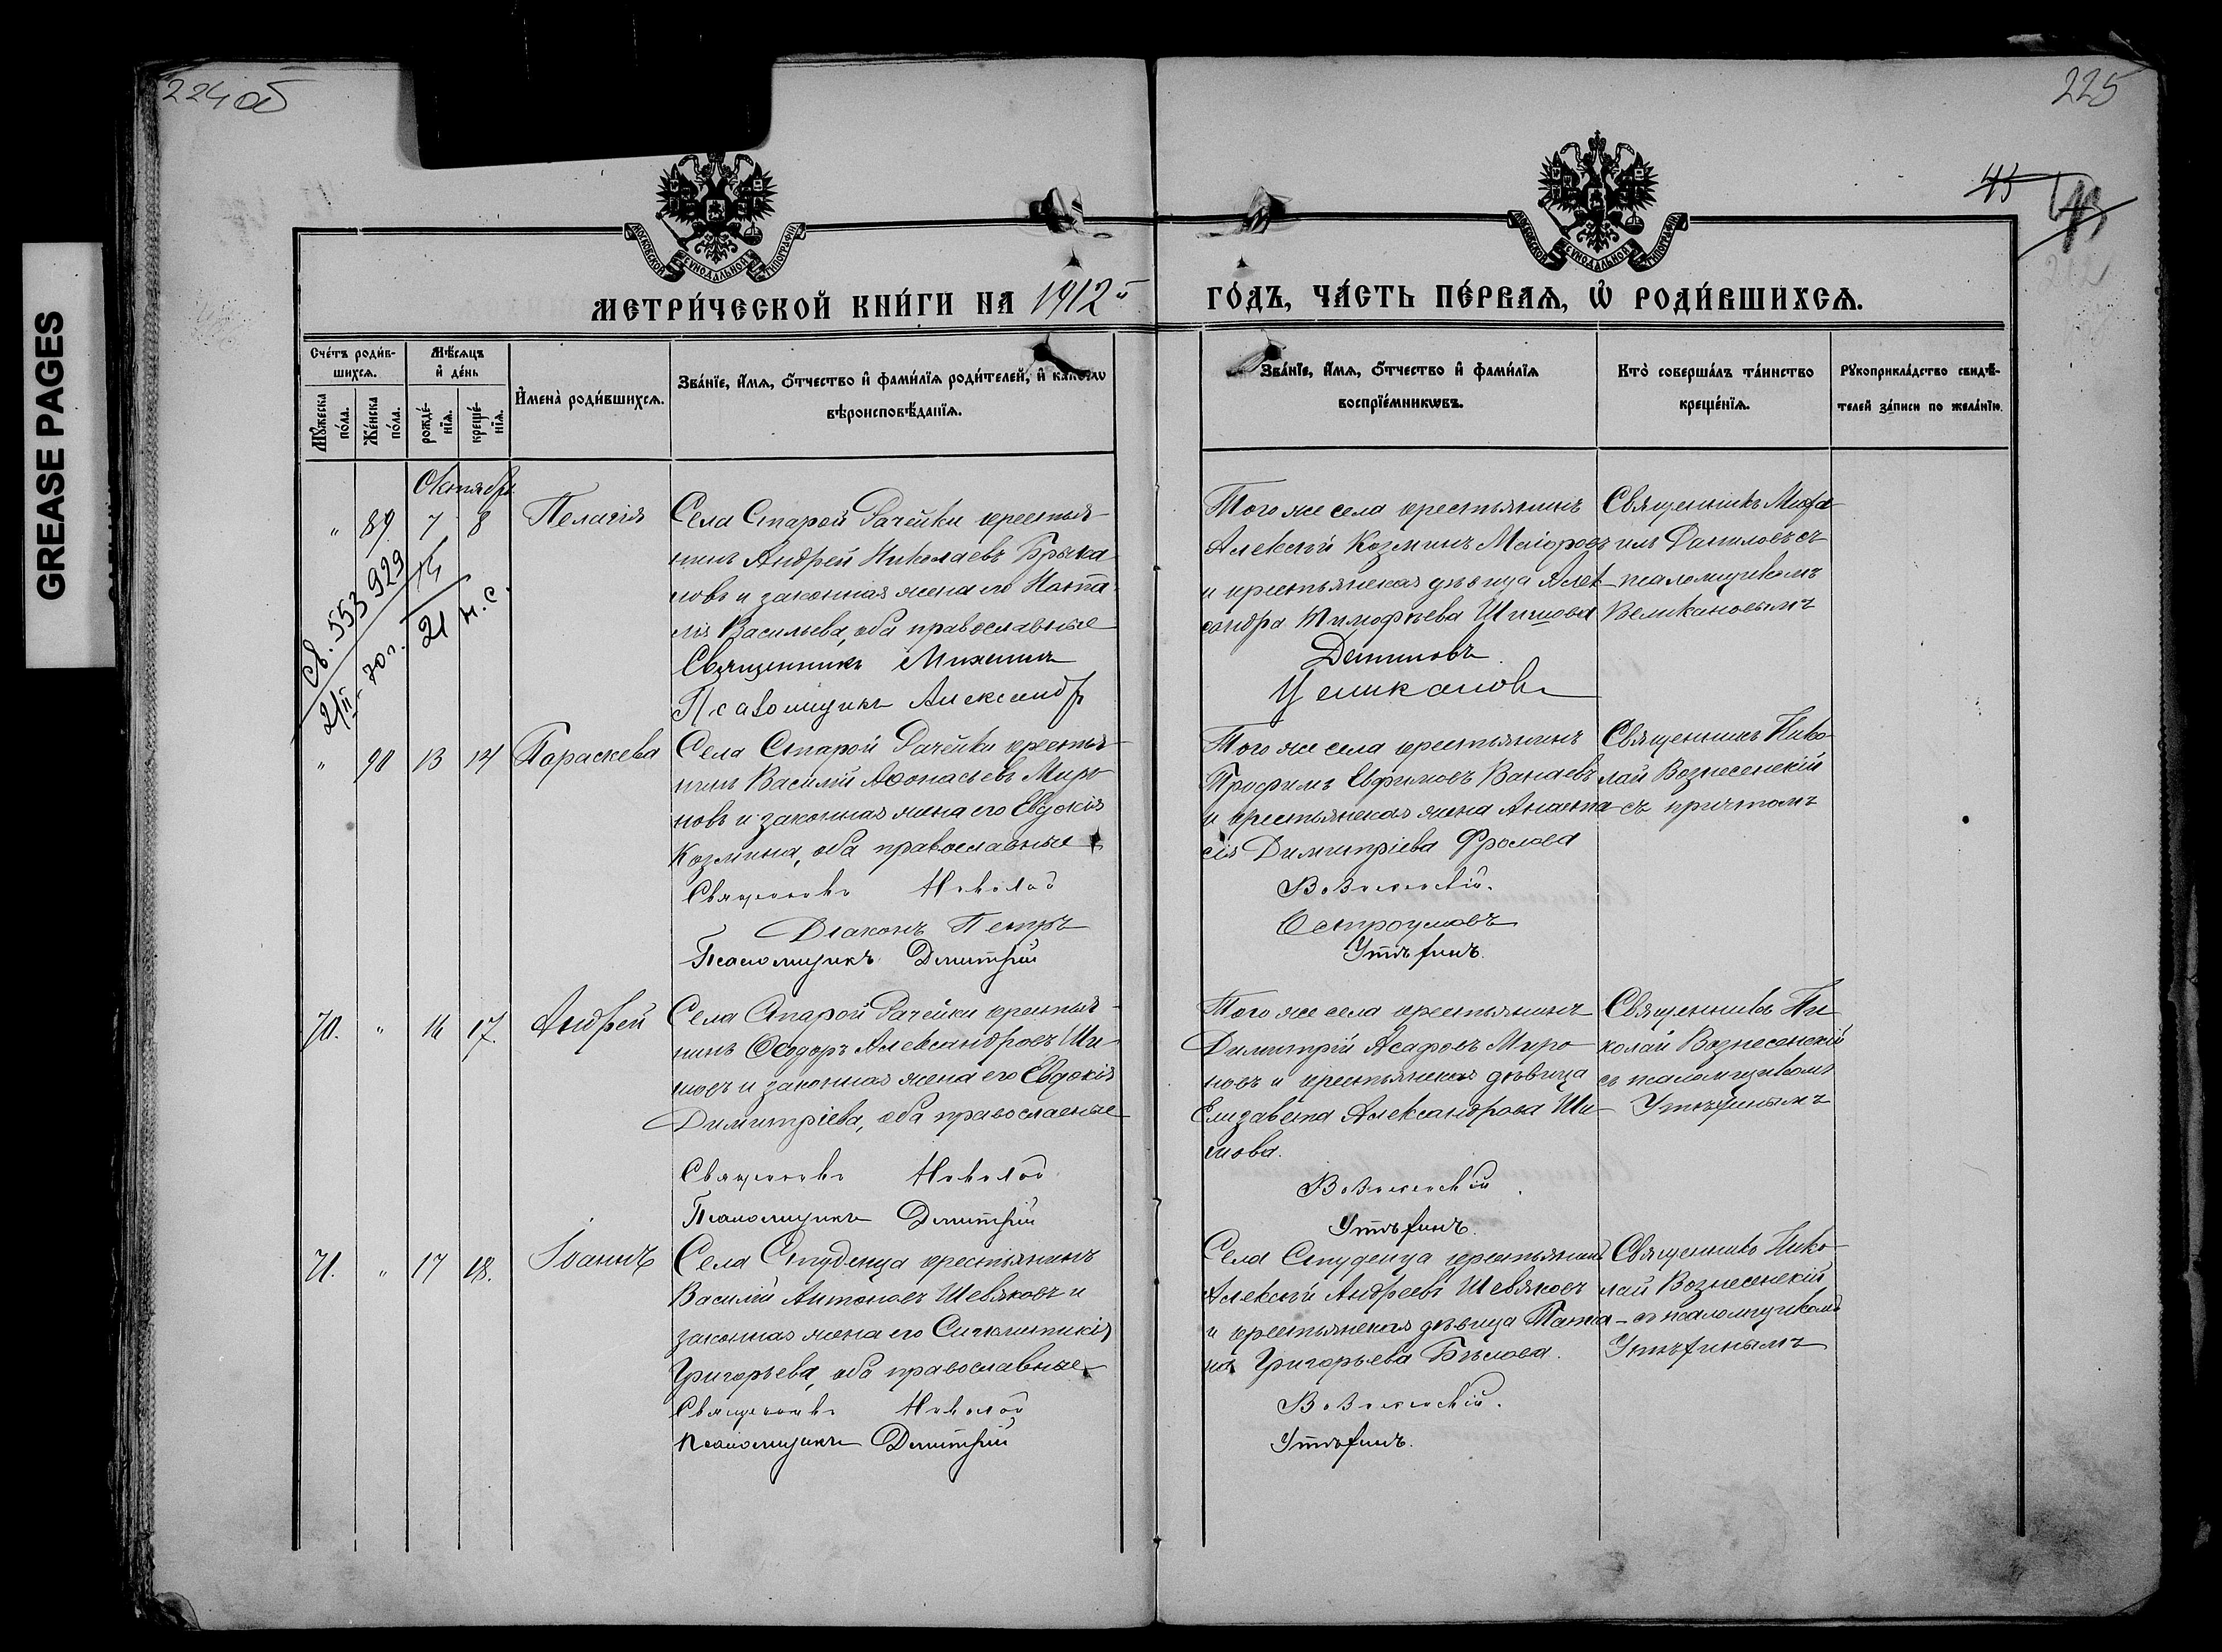 GREASE PAGES
224об
225
45
МОСКОВСКОЙ СѴНОДАЛЬНОЙ ТИПОГРАФІИ
МОСКОВСКОЙ СѴНОДАЛЬНОЙ ТИПОГРАФІИ
МЕТРИ́ЧЕСКОЙ КНИ́ГИ НА 1912й
ГО́ДЪ, ЧА́СТЬ ПЕ́РВАЯ, Ѡ҆ РОДИ́ВШИХСЯ.
Сче́тъ роди́в-
шихся.
Мѣ́сяцъ
и҆ де́нь
Мꙋ́жеска
по́ла.
Же́нска
по́ла.
рожде́-
нїя.
креще́-
нїя.
И҆мена̀ роди́вшихся.
Зва́нїе, и҆́мя, ѻ҆́тчество и҆ фами́лїя роди́телей, и҆ како́гѡ
вѣроисповѣ́данїя.
Зва́нїе, и҆́мя, ѻ҆́тчество и҆ фами́лїя
воспрїе́мникѡвъ.
Кто̀ соверша́лъ та́инство
креще́нїя.
Рꙋкоприкла́дство свидѣ́-
телей за́писи по жела́нїю.
Октябрь
" 89. 7 8 Пелагія
Села Старой Рачейки крестья-
нинъ Андрей Николаевъ Брыка-
новъ и законная жена его Ната-
лія Васильева, оба православные
Священникъ Михаилъ
Псаломщикъ Александръ
Св. 553 929
21/II-70 г.
21 н.с.
Того же села крестьянинъ
Алексѣй Козминъ Маіоровъ
и крестьянская дѣвица Алек-
сандра Тимофѣева Шишова
Даниловъ
Великановъ
Священникъ Миха-
илъ Даниловъ съ
псаломщикомъ
Великановымъ
" 90 13 14 Параскева
Села Старой Рачейки крестья-
нинъ Василій Аѳонасьевъ Миро-
новъ и законная жена его Евдокія
Козмина, оба православные
Священникъ Николай
Діаконъ Петръ
Псаломщикъ Димитрій
Того же села крестьянинъ
Трофимъ Евфимовъ Ванаевъ
и крестьянская жена Анаста-
сія Димитріева Фролова
Вознесенскій.
Остроумовъ
Утѣхинъ.
Священникъ Нико-
лай Вознесенскій
съ причтомъ
70. " 16 17. Андрей
Села Старой Рачейки крестья-
нинъ Ѳеодоръ Александровъ Ши-
шовъ и законная жена его Евдокія
Димитріева, оба православные
Священникъ Николай
Псаломщикъ Димитрій
Того же села крестьянинъ
Димитрій Асафовъ Миро-
новъ и крестьянская дѣвица
Елизавета Александрова Ши-
шова.
Вознесенскій.
Утѣхинъ.
Священникъ Ни-
колай Вознесенскій
съ псаломщикомъ
Утѣхинымъ
71. " 17 18. Іоаннъ
Села Студенца крестьянинъ
Василій Антоновъ Шевяковъ и
законная жена его Синклитикія
Григорьева, оба православные
Священникъ Николай
Псаломщикъ Димитрій
Села Студенца крестьянинъ
Алексѣй Андреевъ Шевяковъ
и крестьянская дѣвица Татіа-
на Григорьева Бѣлова.
Вознесенскій.
Утѣхинъ.
Священникъ Нико-
лай Вознесенскій
съ псаломщикомъ
Утѣхинымъ